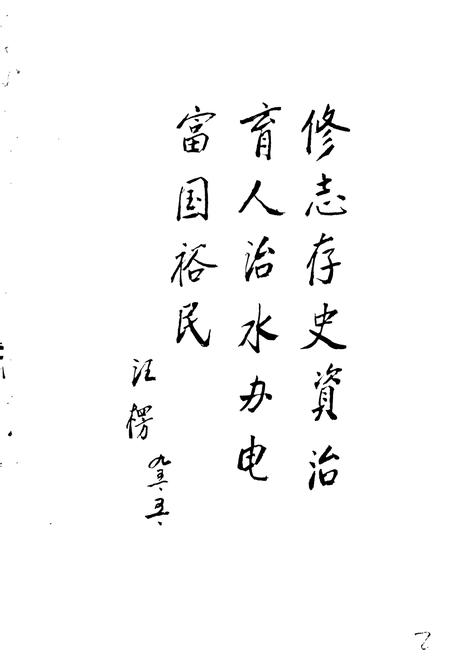 修志存史資治
育人治水办电
富国裕民
汪楞
九三、五、